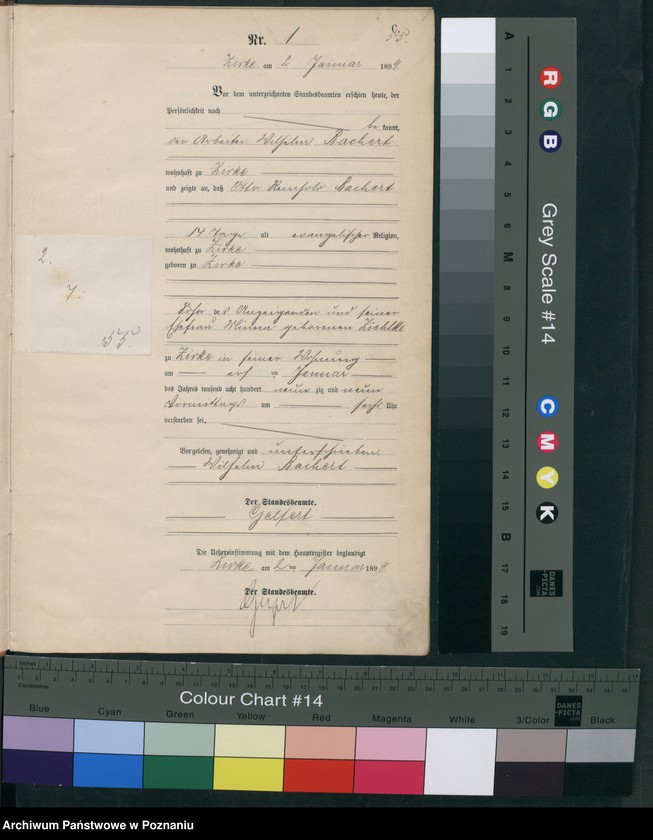 Nr. 1
C.
55.
Zirke am 2 Januar 1899.
Vor dem unterzeichneten Standesbeamten erschien heute, der
Persönlichkeit nach
be kannt,
der Arbeiter Wilhelm Bachert
wohnhaft zu Zirke
und zeigte an, daß Otto Reinhold Bachert
14 Tage alt evangelischer Religion,
wohnhaft zu Zirke
geboren zu Zirke
2.
7.
55.
Sohn des Anzeigenden und seiner
Ehefrau Minna geborenen
zu Zirke in seiner Wohnung
am ersten Januar
des Jahres tausend acht hundert neun zig und neun
Vormittags um sechs Uhr
verstorben sei.
Vorgelesen, genehmigt und unterschrieben
Wilhelm Bachert
Der Standesbeamte.
Gelfert
Die Uebereinstimmung mit dem Hauptregister beglaubigt
Zirke am 2ten Januar 1899
Der Standesbeamte.
A 1 2 3 4 5 6 M 8 9 10 11 12 13 14 15 B 17 18 19
R G B
Grey Scale #14
C M Y K
DANES
-PICTA
.COM
Inches
Centimetres
Colour Chart #14
Blue Cyan Green Yellow Red Magenta White 3/Color Black
DANES
-PICTA
.COM
Archiwum Państwowe w Poznaniu